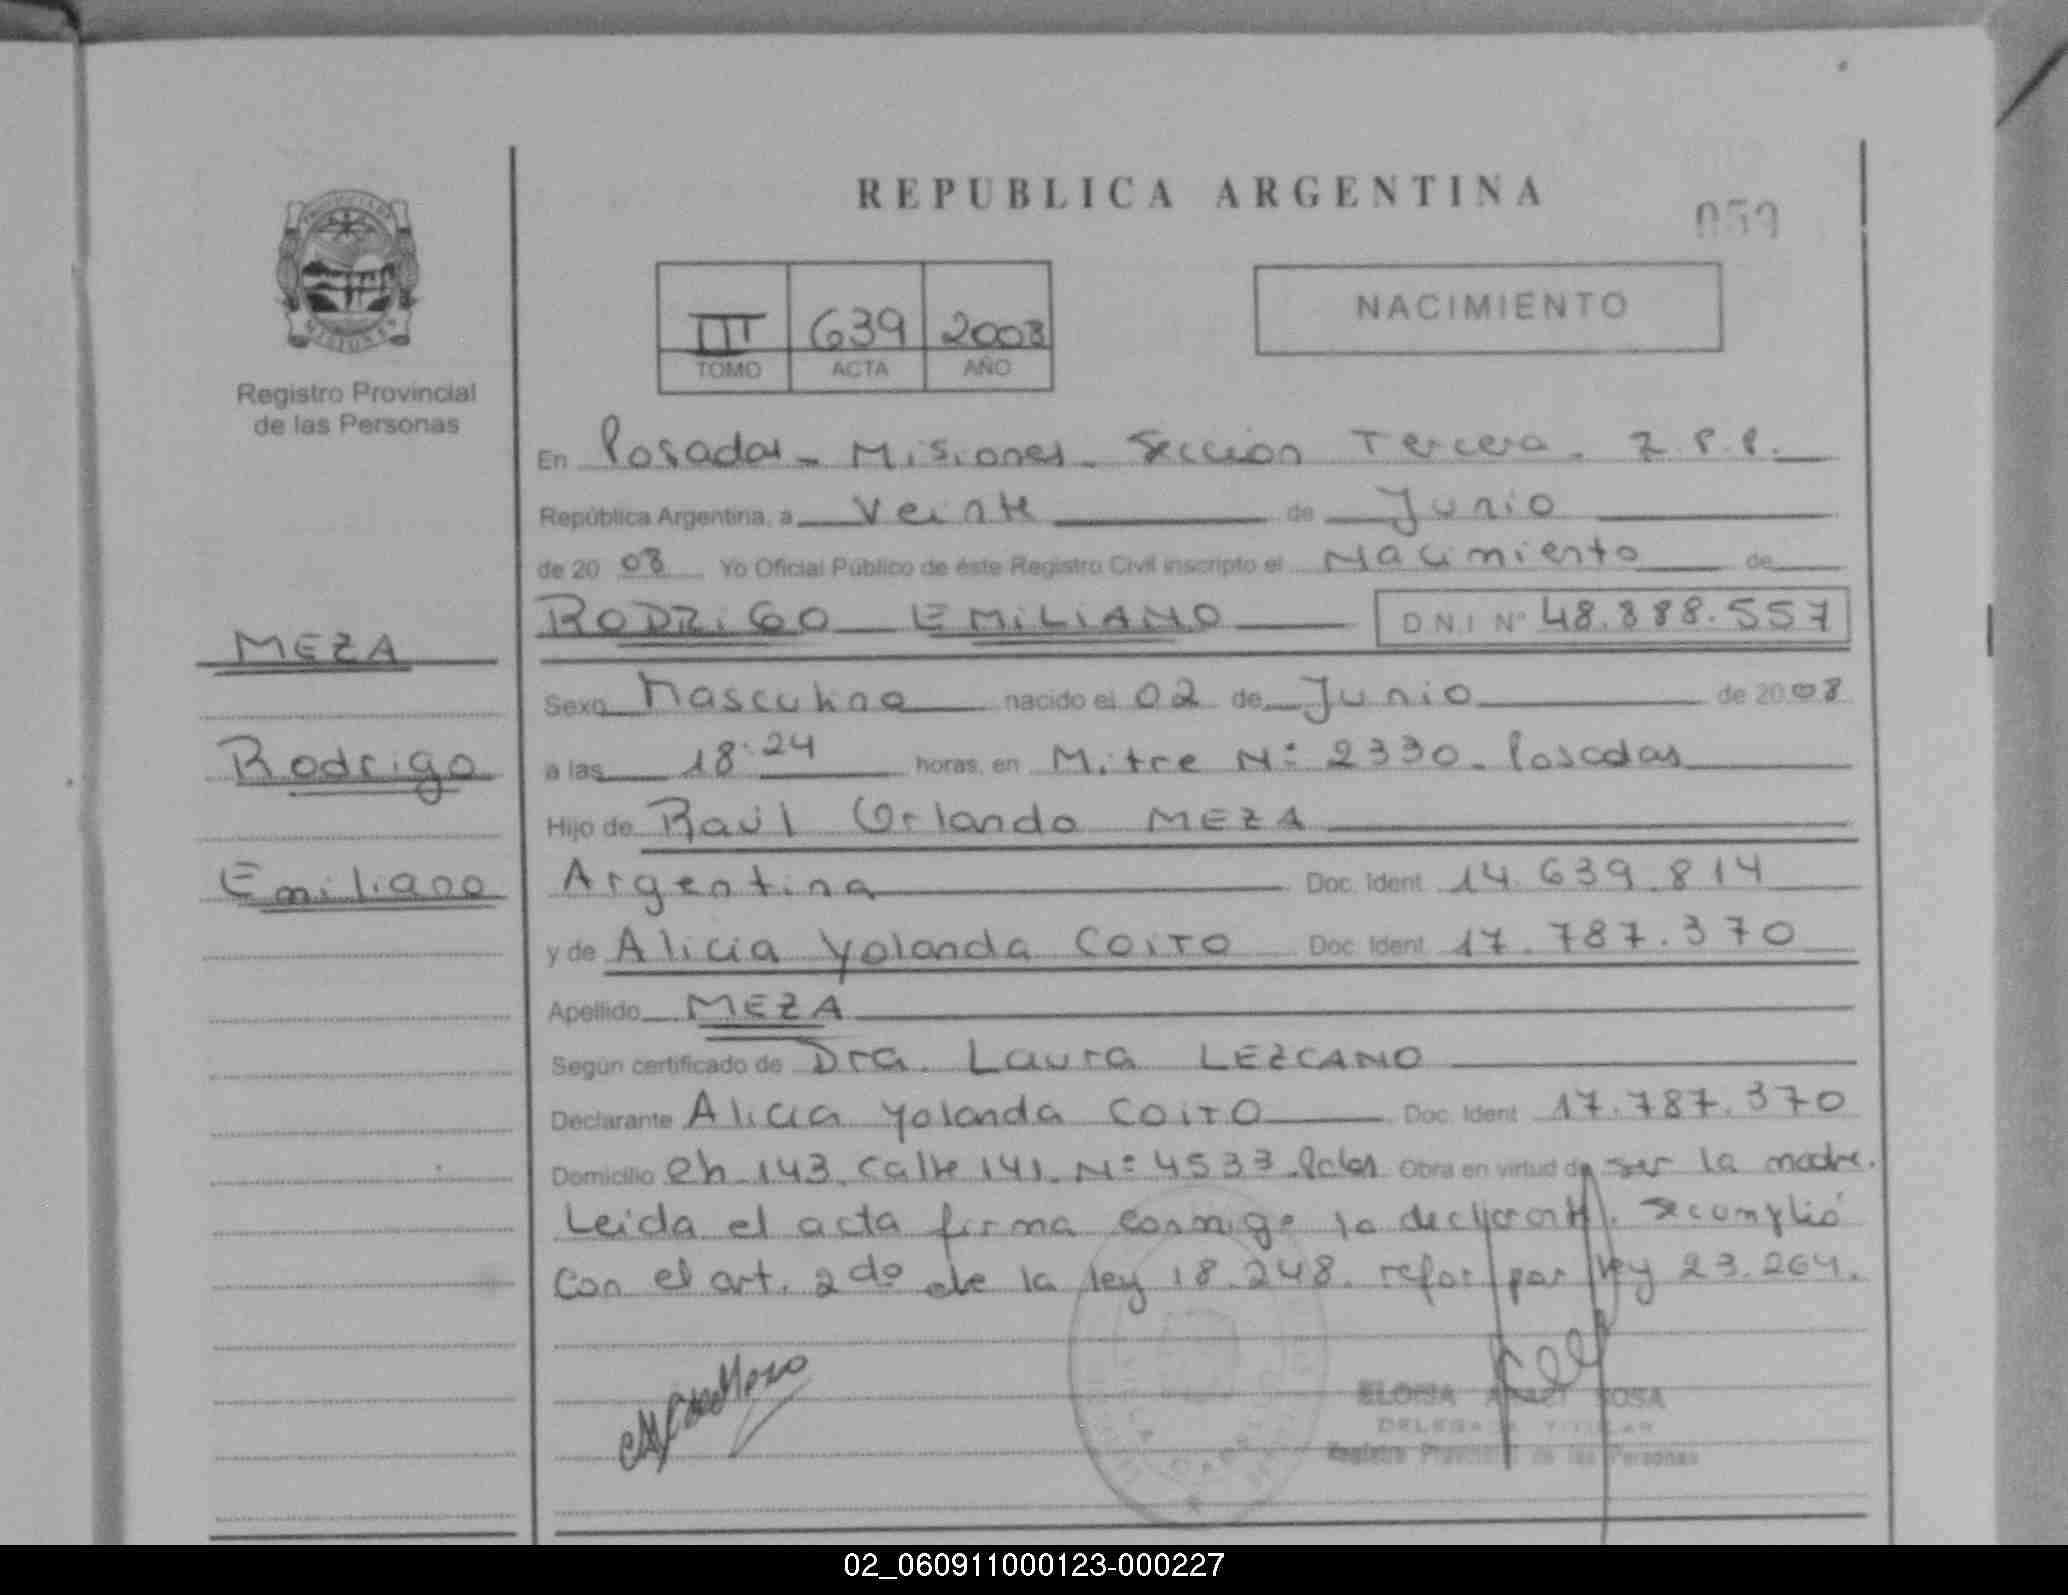 REPUBLICA ARGENTINA
059
III 639 2008
TOMO ACTA AÑO
NACIMIENTO
MISIONES
Registro Provincial
de las Personas
En Posadas - Misiones. Sección Tercera. Z.P.P.
República Argentina, a Veinte de Junio
de 20 08 Yo Oficial Público de éste Registro Civil inscripto el Nacimiento de
RODRIGO EMILIANO D.N.I Nº 48.888.557
MEZA
Rodrigo
Emiliano
Sexo Masculino nacido el 02 de Junio de 20 08
a las 18:24 horas, en Mitre Nº 2330. Posadas
Hijo de Raúl Orlando MEZA
Argentina Doc. Ident 14.639.814
y de Alicia Yolanda COITO Doc. Ident 17.787.370
Apellido MEZA
Según certificado de Dra. Laura LEZCANO
Declarante Alicia Yolanda COITO Doc. Ident 17.787.370
Domicilio Ch 143. Calle 141. Nº 4533. Pdas Obra en virtud de ser la madre.
Leida el acta firma conmigo la declarante. Se cumplió
con el art. 2do de la ley 18.248. refor por ley 23.264.
ELOISA ROSA
DELEGADA TITULAR
Registro Provincial de las Personas
02_060911000123-000227